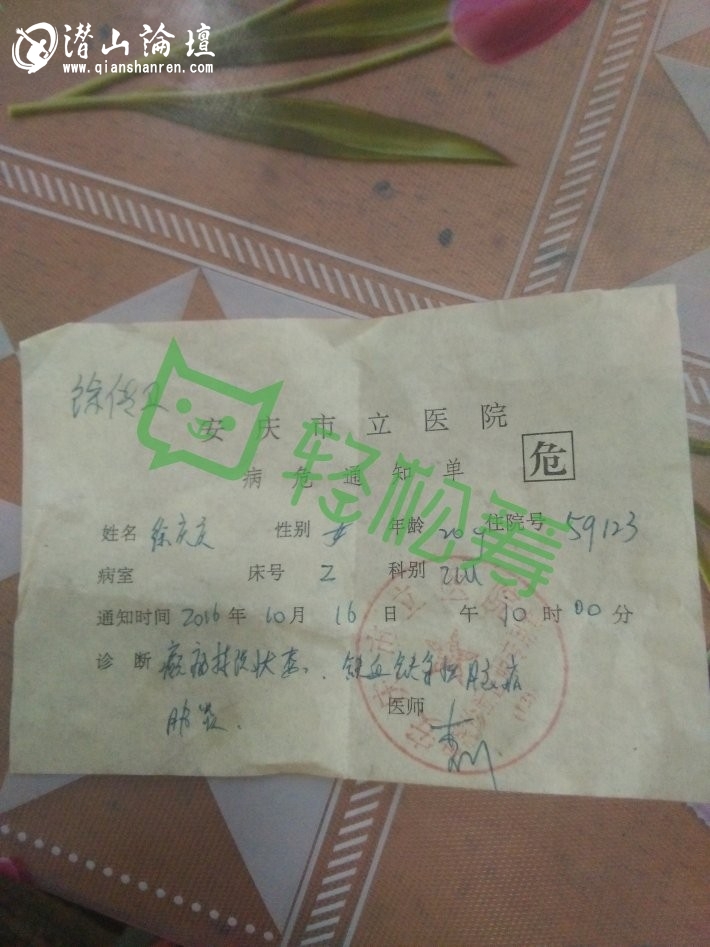 潜山論壇
www.qianshanren.com
徐传卫
安庆市立医院
病危通知单 危
轻松筹
姓名 徐庆 性别 女 年龄 20 住院号 59123
病室 床号 2 科别 ICU
通知时间 2016年10月16日 午10时00分
诊断 癫痫持续状态、缺血缺氧性脑病
肺炎.
医师